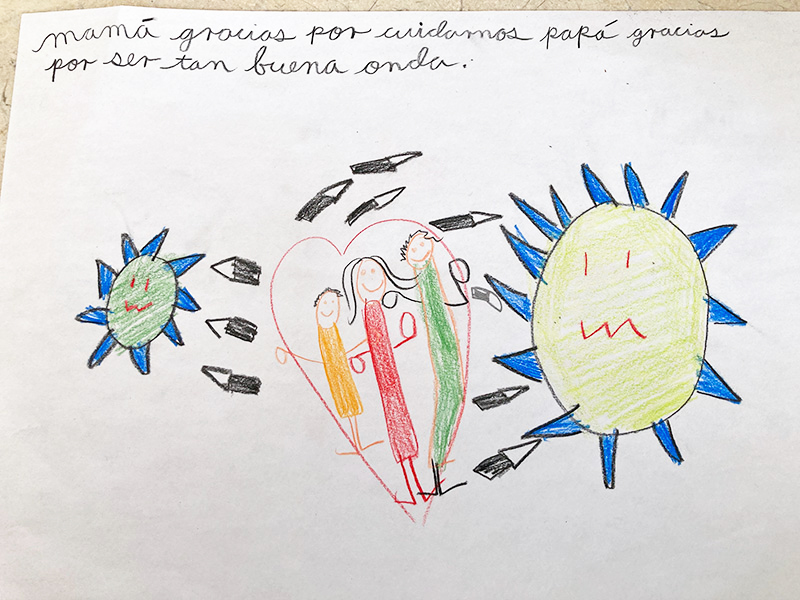 mamá gracias por cuidarnos papá gracias
por ser tan buena onda.